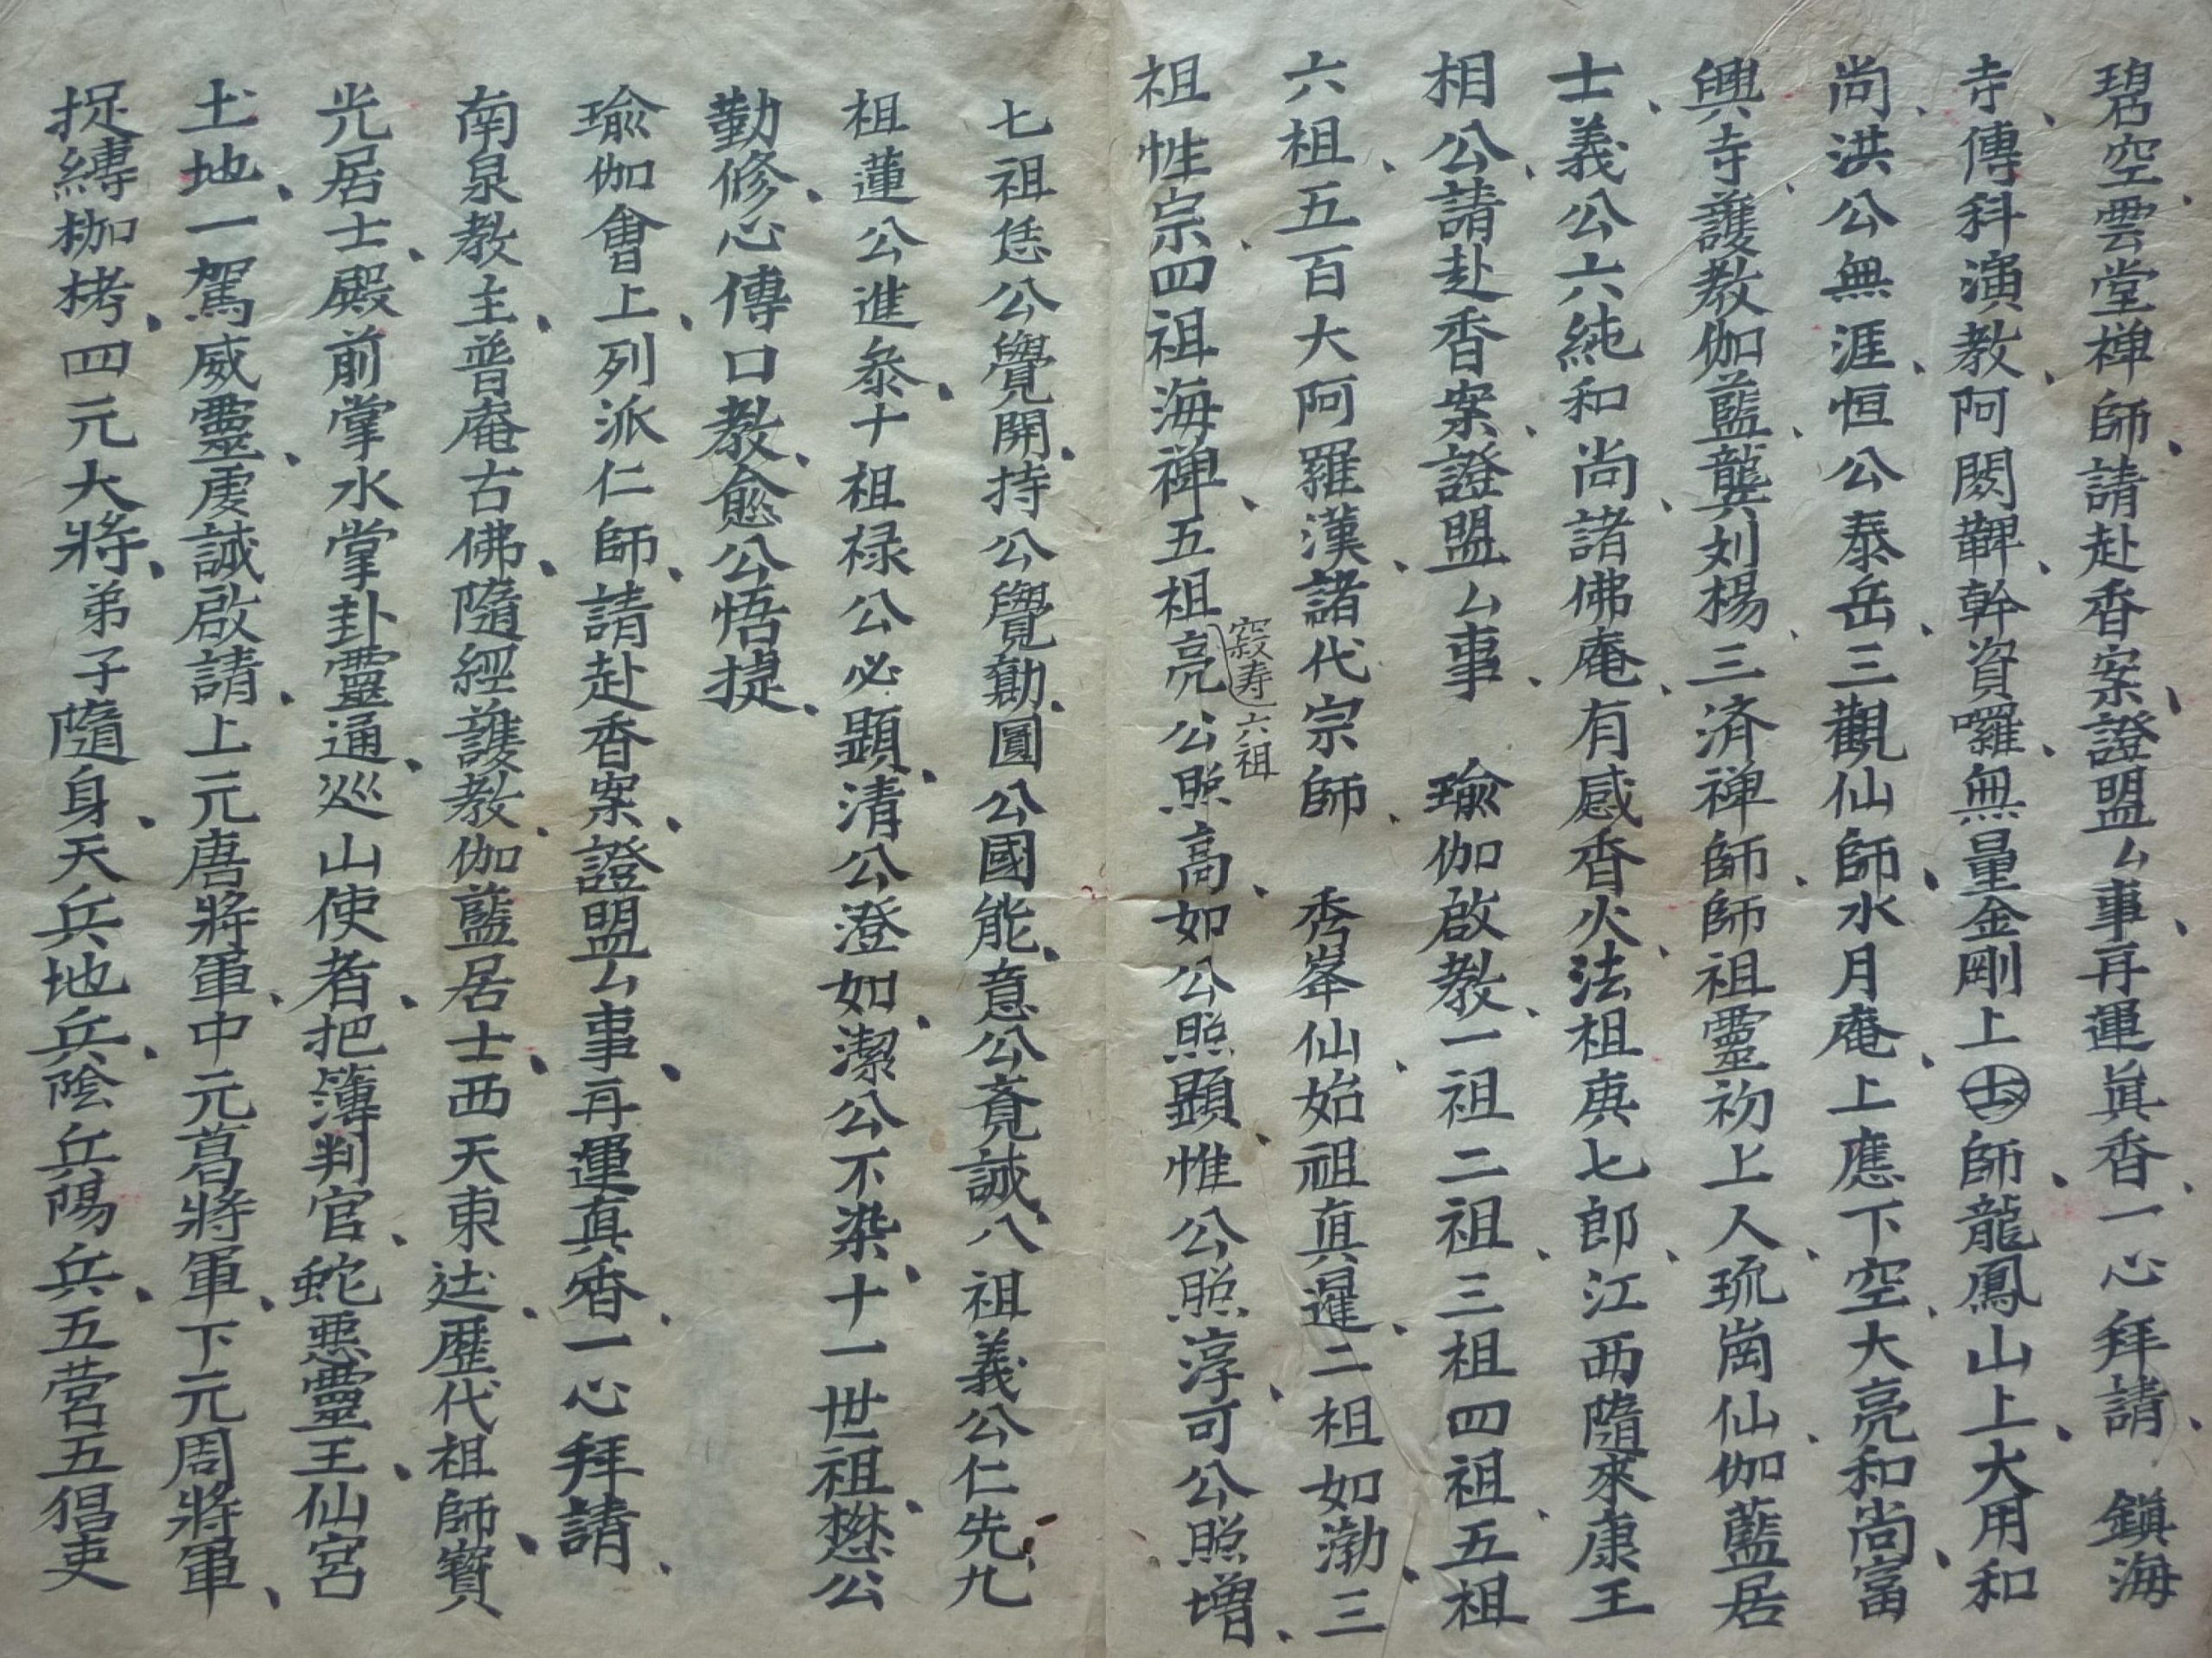 碧空雲堂禅師、請赴香案、證盟厶事、再運眞香、一心拜請、鎮海
寺、傳科演教、阿閦鞞、幹資囉、無量金剛上師、龍鳳山上、大用和
尚、洪公無涯、恒公泰岳、三觀仙師、水月庵、上應下空、大亮和尚、富
興寺、護教伽藍、龔刘楊、三済禅師、師祖靈初上人、琉崗仙、伽藍居
士、義公六純和尚、諸佛庵、有感香火、法祖庚七郎、江西隨來康王
相公、請赴香案、證盟厶事、瑜伽啟教、一祖二祖、三祖四祖、五祖
六祖、五百大阿羅漢、諸代宗師、秀峯仙、始祖真暹、二祖如渤、三
祖性宗、四祖海禅、五祖亮公照高、如公照顕、惟公照淳、可公照增、
寂寿六祖
七祖恁公覺開、持公覺勷、圓公國能、意公竟誠、八祖義公仁先九
祖蓮公進叅、十祖禄公必顕、清公澄如、潔公不染、十一世祖、懋公
勤修、心傳口教、愈公悟提、
瑜伽會上、列派仁師、請赴香案、證盟厶事、再運真香、一心拜請、
南泉教主、普庵古佛、隨經護教、伽藍居士、西天東迏、歷代祖師、寶
光居士、殿前掌水掌卦靈通、巡山使者、把簿判官、蛇悪靈王、仙宮
土地、一駕威靈、虔誠啟請、上元唐將軍、中元葛將軍、下元周將軍、
捉縛枷栲、四元大將、弟子隨身、天兵地兵、陰兵陽兵、五营五猖吏